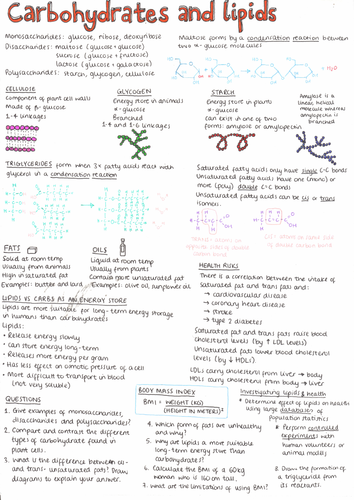 Carbohydrates and lipids
Monosaccharides: glucose, ribose, deoxyribose
Disaccharides: maltose (glucose + glucose)
sucrose (glucose + fructose)
lactose (glucose + galactose)
Polysaccharides: starch, glycogen, cellulose
Maltose forms by a condensation reaction between
two α-glucose molecules
+ H₂O
CELLULOSE
Component of plant cell walls
Made of β-glucose
1-4 linkages
GLYCOGEN
Energy store in animals
α-glucose
Branched
1-4 and 1-6 linkages
STARCH
Energy store in plants
α-glucose
Can exist in one of two
forms: amylose or amylopectin
Amylose is a
linear helical
molecule whereas
amylopectin is
branched
TRIGLYCERIDES form when 3× fatty acids react with
glycerol in a condensation reaction
Saturated fatty acids only have single C-C bonds
Unsaturated fatty acids have one (mono) or
more (poly) double C=C bonds
Unsaturated fatty acids can be cis or trans
isomers.
FATS
Solid at room temp
Usually from animals
High in saturated fat
Examples: butter and lard
OILS
Liquid at room temp
Usually from plants
Contains more unsaturated fat
Examples: olive oil, sunflower oil
LIPIDS VS CARBS AS AN ENERGY STORE
Lipids are more suitable for long-term energy storage
in humans than carbohydrates
Lipids:
• Release energy slowly
• Can store energy long-term
• Releases more energy per gram
• Has less effect on osmotic pressure of a cell
• More difficult to transport in blood
(not very soluble)
HEALTH RISKS
There is a correlation between the intake of
Saturated fat and trans fats and:
→ cardiovascular disease
→ coronary heart disease
→ stroke
→ type 2 diabetes
Saturated fat and trans fats raise blood
cholesterol levels (by ↑ LDL levels)
Unsaturated fats lower blood cholesterol
levels (by ↓ HDLs)
LDLs carry cholesterol from liver → body
HDLs carry cholesterol from body → liver
QUESTIONS
1. Give examples of monosaccharides,
disaccharides and polysaccharides?
2. Compare and contrast the different
types of carbohydrate found in
plant cells.
3. What is the difference between cis-
and trans- unsaturated fats? Draw
diagrams to explain your answer.
BODY MASS INDEX
BMI = WEIGHT (KG)
(HEIGHT IN METERS)²
4. Which form of fats are unhealthy
and why?
5. Why are lipids a more suitable
long-term energy store than
carbohydrates?
6. Calculate the BMI of a 60kg
woman who is 160cm tall.
7. What are the limitations of using BMI?
Investigating lipids & health
* Determine effect of lipids on health
using large databases of
population statistics
* Perform controlled
experiments with
human volunteers or
animal models
8. Draw the formation of
a triglyceride from
its reactants